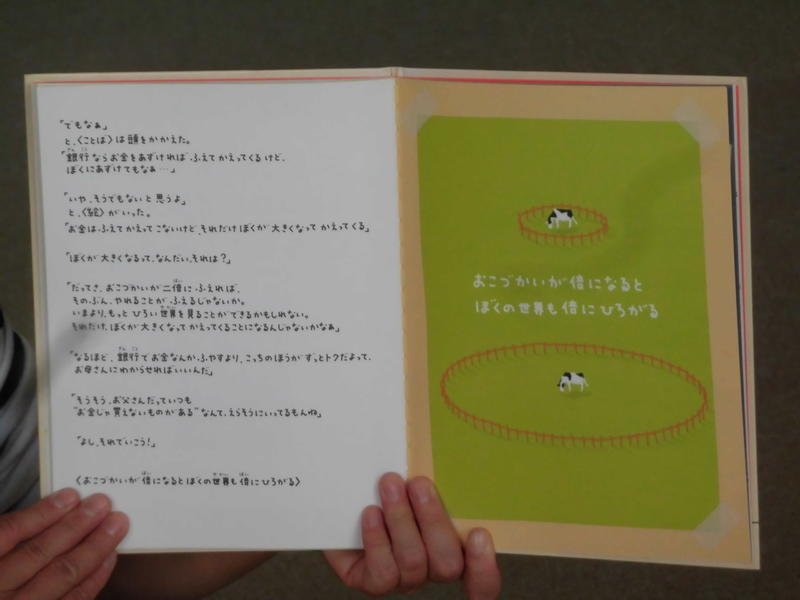 「でもなぁ」
と、〈ことば〉は頭をかかえた。
「銀行ならお金をあずければ、ふえてかえってくるけど、
ぼくにあずけてもなぁ…」
「いや、そうでもないと思うよ」
と、〈絵〉がいった。
「お金は、ふえてかえってこないけど、それだけぼくが大きくなってかえってくる」
「ぼくが大きくなるって、なんだい、それは？」
「だってさ、おこづかいが二倍にふえれば、
そのぶん、やれることがふえるじゃないか。
いまより、もっとひろい世界を見ることができるかもしれない。
それだけ、ぼくが大きくなってかえってくることになるんじゃないかなぁ」
「なるほど、銀行でお金なんかふやすより、こっちのほうがずっとトクだよって、
お母さんにわからせればいいんだ」
「そうそう、お父さんだっていつも
“お金じゃ買えないものがある”なんて、えらそうにいってるもんね」
「よし、それでいこう！」
〈おこづかいが倍になるとぼくの世界も倍にひろがる〉
おこづかいが倍になると
ぼくの世界も倍にひろがる